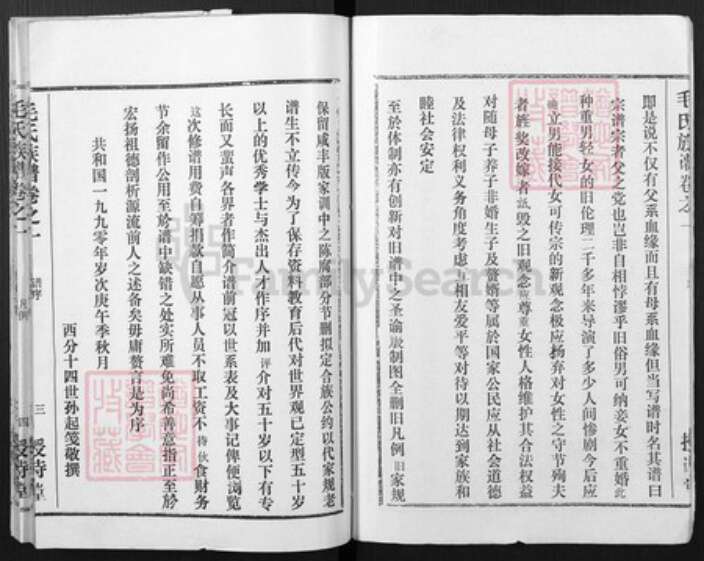 毛氏族谱卷之一
即是说不仅有父系血缘而且有母系血缘但当写谱时名其谱曰
宗谱宗者父之党也岂非自相悖谬乎旧俗男可纳妾女不重婚此
种重男轻女的旧伦理二千多年来导演了多少人间惨剧今后应
立男能接代女可传宗的新观念极应扬弃对女性之守节殉夫
者旌奖改嫁者诋毁之旧观念应尊重女性人格维护其合法权益
对随母子养子非婚生子及赘婿等属於国家公民应从社会道德
及法律权利义务角度考虑互相友爱平等对待以期达到家族和
睦社会安定
至於体制亦有创新对旧谱中之圣谕 制图全删旧凡例旧家规
保留咸丰版家训中之陈腐部分节删拟定合族公约以代家规老
谱生不立传今为了保存资料教育后代对世界观已定型五十岁
以上的优秀学士与杰出人才作序并加评介对五十岁以下有专
长而又蜚声各界者作简介谱前冠以世系表及大事记俾便浏览
这次修谱用费自筹捐款自愿从事人员不取工资不待伙食财务
节余留作公用至於谱中缺错之处实所难免尚希善意指正至於
宏扬祖德剖析源流前人之述备矣毋庸赘言是为序
共和国一九九零年岁次庚午季秋月
西分十四世孙起笺敬撰
毛氏族谱卷之一
谱序
三
授诗堂
毛氏族谱卷之一
凡例
四
授诗堂
FamilySearch